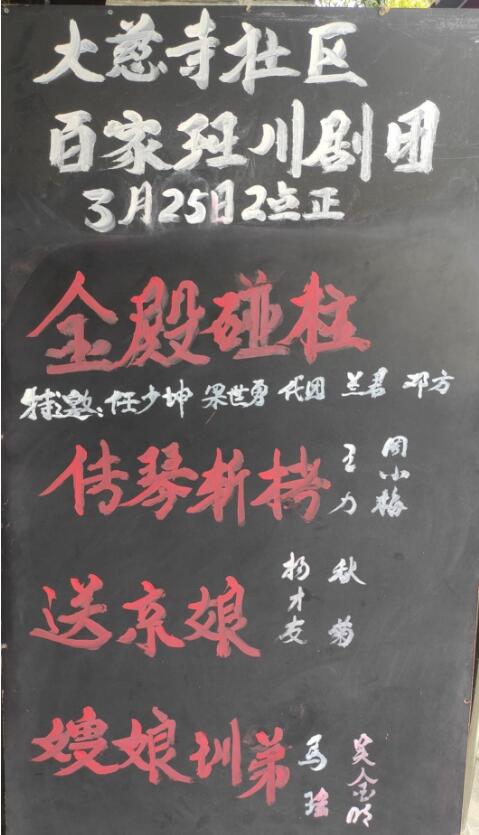 大慈寺社区
百家班川剧团
3月25日2点正
金殿碰柱
特邀:任少坤 梁世勇 代团 兰君 邓方
传琴斩拷 王力 周小梅
送京娘 杨才友 秋菊
嫂娘训弟 马瑶 吴金明